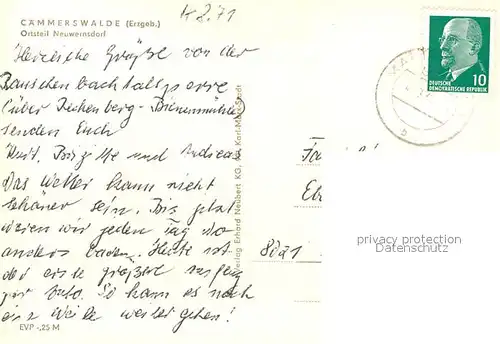 K 8.71
CÄMMERSWALDE (Erzgeb.)
Ortsteil Neuwernsdorf
Herzliche Grüße von der
Rauschenbachtalsperre
über Rechenberg-Bienenmühle
senden Euch
Kurt, Brigitte und Andrea
Das Wetter kann nicht
schöner sein. Bis jetzt
waren wir jeden Tag wo
anders baden. Heute ist
der erste größere
per Auto. So kann es noch
eine Weile weiter gehen!
EVP -,25 M
Verlag Erhard Neubert KG, Karl-Marx-Stadt
10
DEUTSCHE
DEMOKRATISCHE REPUBLIK
Fa
8021
privacy protection
VARIAGE.COM